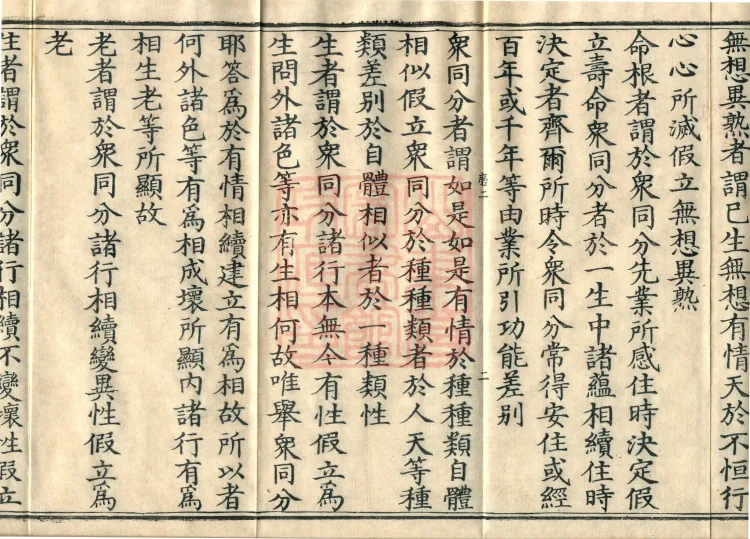 無想異熟者謂已生無想有情天於不恒行
心心所滅假立無想異熟
命根者謂於衆同分先業所感住時決定假
立壽命衆同分者於一生中諸蘊相續住時
決定者齊爾所時令衆同分常得安住或經
百年或千年等由業所引功能差別
衆同分者謂如是如是有情於種種類自體
相似假立衆同分於種種類者於人天等種
類差別於自體相似者於一種類性
生者謂於衆同分諸行本無今有性假立為
生問外諸色等亦有生相何故唯舉衆同分
耶答為於有情相續建立有為相故所以者
何外諸色等有為相成壞所顯內諸行有為
相生老等所顯故
老者謂於衆同分諸行相續變異性假立為
老
生者謂於衆同分諸行相續不變壞性假立
二